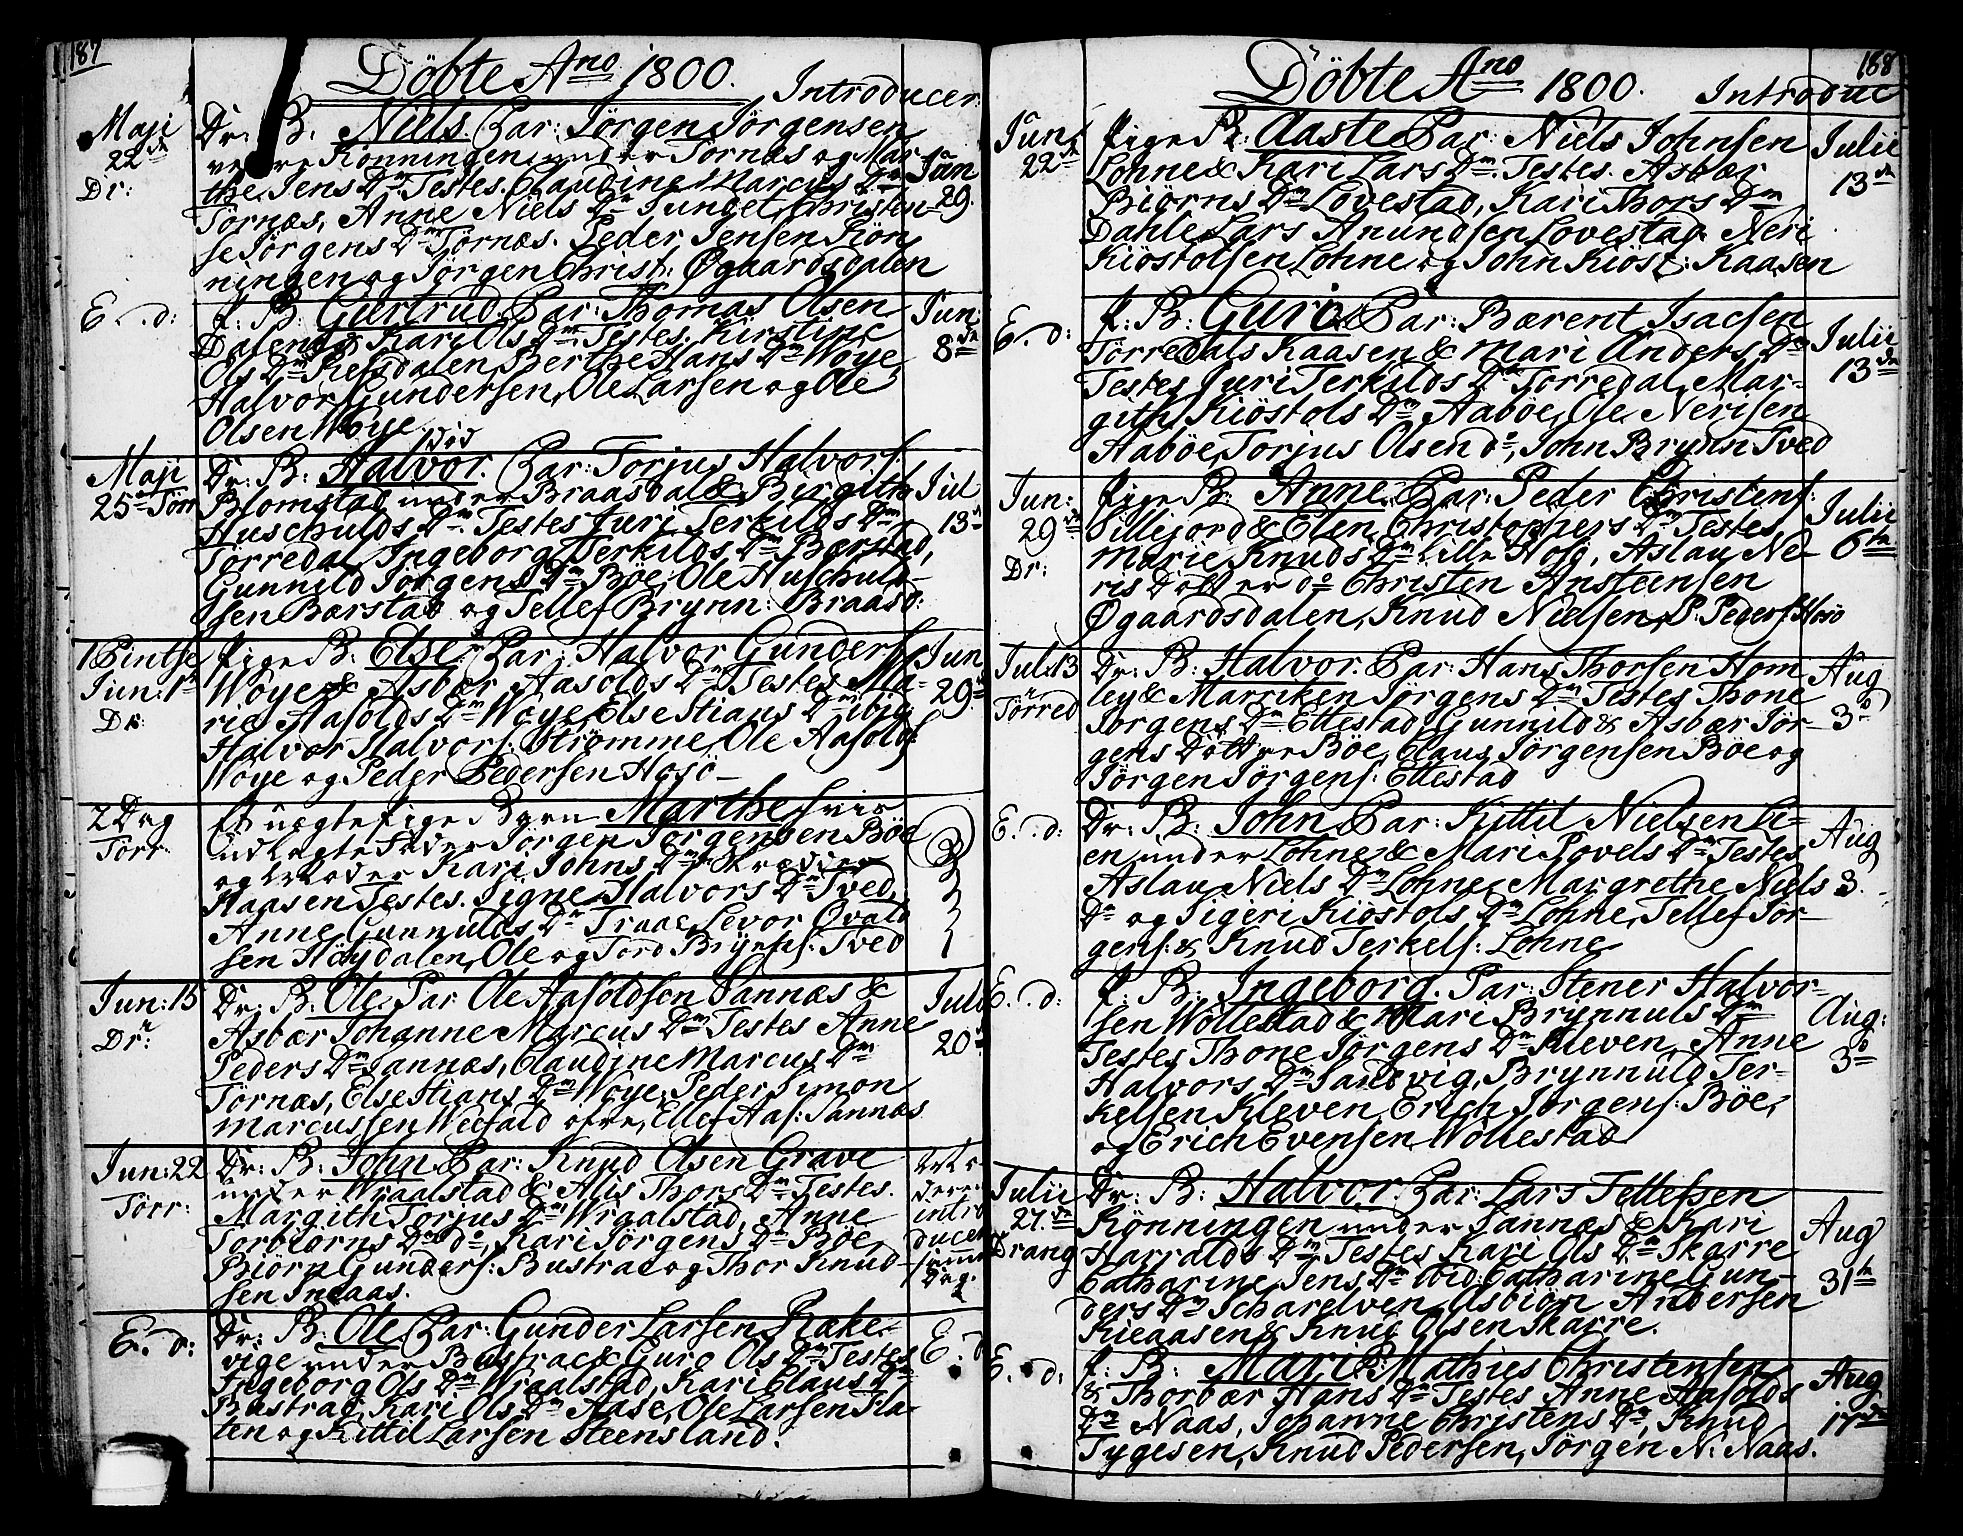 187
Döbte Ano 1800.
Introducer
Maji
22de
Dr:
Dr: B: Niels. Par: Jörgen Jörgensen
Könningen under Tornæs og Mar-
the Jens Dr Testes. Claudine Marcus Dr
Tornæs, Anne Niels Dr Sundet, Christen-
se Jörgens Dr Tornæs. Peder Jensen Kön-
ningen og Jörgen Christ: Øgaardsdalen
Jun
29.
E. d:
P: B: Gurtrud. Par: Thomas Olsen
Dalen & Kari Ols Dr Testes. Kirstine
Ols Dr Refsdalen, Berthe Hans Dr Woye
Halvor Gundersen, Ole Larsen og Ole
Olsen Woye
Jun:
8de
Maji
25de Törr
Dr: B: Halvor. Par: Torjus Halvors:
Blomstad under Braasdal & Birgith
Huschulds Dr Testes Juri Terkilds Dr
Torredal, Ingeborg Terkilds Dr Bærstad,
Gunnild Jörgens Dr Böe, Ole Huschuld-
sen Bærstad og Tellef Brynn: Braasd:
Jul
13
1 Pintse
Jun: 1
Dr:
Pige B: Else. Par: Halvor Gunders:
Woye & Asbær Aasolds Dr Testes Ma-
rie Aasolds Dr Woye, Else Stians Dr ibid
Halvor Halvors: Strömme, Ole Aasolds:
Woye og Peder Pedersen Hosö
Jun
29
2 Dag
Törr:
Et uægte Pige Barn Marthe hvis
udlagte Fader Jörgen Jörgensen Böe
og Moder Kari Johns Dr Skrædder
Haasen Testes. Signe Halvors Dr Tved,
Anne Gunnulds Dr Traae, Levor Ovald
sen Höydalen, Ole og Tord Brynels: Tved
Jun: 15
Dr:
Dr: B. Ole. Par: Ole Aasoldsen Sannæs &
Asbær Johanne Marcus Dr Testes Anne
Peders Dr Sannæs, Claudine Marcus Dr
Tornæs, Else Stians Dr Woye, Peder Simon
Marcussen Weefald, Ellef Aas: Sannæs
Jul:
20
Jun: 22
Törr:
Dr: B: John Par: Knud Olsen Grave
under Wraalstad & Alis Thors Dr Testes.
Margith Torjus Dr Wraalstad, Anne
Torbiörns Dr do, Kari Jörgens Dr Böe,
Biörn Gunders: Bustrac og Thor Knud-
sen Snaas.
intro
ducer
samme
Dag.
E. d:
Dr: B: Ole. Par: Gunder Larsen Rake-
vige under Bustrac & Guro Ols Dr Testes
Ingeborg Ols Dr Wraalstad, Kari Claus Dr
Bustrac, Kari Ols Dr Aase, Ole Larsen Fla-
ten og Kittil Larsen Steensland.
E. d
188
Döbte Ano 1800.
Introduc
Jun:
22de
Pige B: Aaste Par: Niels Johnsen
Lohne & Kari Lars Dr Testes. Asbær
Biörns Dr Lovestad, Kari Thors Dr
Dahle Lars Anundsen Lovestad, Neri
Kiöstolsen Lohne og John Kiöst: Kaasen
Julii
13de
E. d:
P: B: Guro. Par: Bærent Isacsen
Torredals Kaasen & Mari Anders Dr
Testes Juri Terkilds Dr Torredal, Mar-
gith Kiöstols Dr Aaböe, Ole Nerisen
Aaböe, Torjus Olsen do, John Brynn Tved
Julii
13de
Jun:
29de
Dr:
Pige B: Anne. Par: Peder Christens:
Sillejord & Elen Christophers Dr Testes
Marie Knuds Dr Lille Hosö, Aslau Ne-
ris Dotter do Christen Ansteensen
Øgaardsdalen, Knud Nielsen, P: Peders: Hosö
Julii
6te
Jul: 13
Törred
Dr: B: Halvor. Par: Hans Thorsen Hom
ley & Marriken Jörgens Dr Testes Thone
Jörgens Dr Ettestad, Gunnild & Asbær Jör-
gens Döttre Böe, Claus Jörgensen Böe og
Jörgen Jörgens: Ettestad
Aug
3
E. d:
Dr: B: John Par: Kittil Nielsen Li-
en under Lohne & Mari Povels Dr Testes
Aslau Niels Dr Lohne, Margrethe Niels
Dr og Sigeri Kiöstols Dr Lohne, Tellef Jör-
gens: & Knud Terkels: Lohne
Aug
3.
E. d:
P: B: Ingeborg. Par: Stener Halvor-
sen Wollestad & Mari Brynnuls Dr
Testes Thone Jörgens Dr Kleven, Anne
Halvors Dr Sandvig, Brynnuld Ter-
kelsen Kleven, Erich Jörgens: Böe,
og Erich Evensen Wollestad
Aug:
3
Julii
27de
Drang
Dr: B: Halvor. Par: Lars Tellefsen
Könningen under Sannæs & Kari
Harralds Dr Testes Kari Ols Dr Skarre
Catharine Jens Dr ibid: Catharine Gun-
ders Dr Scharelven, Asbiön Andersen
Kieaasen & Knud Olsen Skarre.
Aug
31te
E. d:
P: B: Mari P: Mathies Christensen
& Thorbær Hans Dr Testes Anne Aasolds
Dr Naas, Johanne Christens Dr, Knud
Tygesen, Knud Pedersen, Jörgen N: Naas.
Aug
17de